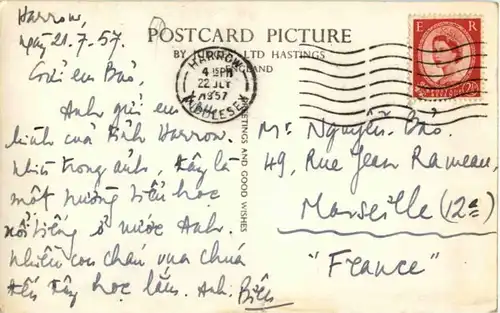 Harrow,
ngày 21-7-57.
POSTCARD PICTURE
LTD HASTINGS
ENGLAND
HARROW
4 15 PM
22 JLY
1957
MIDDLESEX
E R
GREETINGS AND GOOD WISHES
Gửi em Bảo,
Anh gửi em
hình của tỉnh Harrow.
Nhìn trong ảnh, đây là
một trường tiểu học
nổi tiếng ở nước Anh.
Nhiều con cháu vua chúa
đến đây học lắm. Anh
Mr Nguyễn Bảo
49, Rue Jean Rameau,
Marseille (12e)
"France"